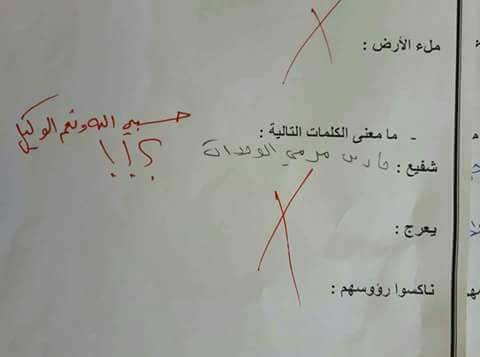 ملء الأرض :
- ما معنى الكلمات التالية :
حسبي الله ونعم الوكيل
؟!!
شفيع : حارس مرمى الوحدات
يعرج :
ناكسوا رؤوسهم :